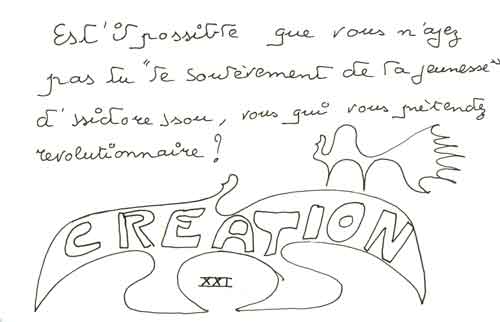 Est-il possible que vous n'ayez
pas lu "le soulèvement de la jeunesse"
d'Isidore Isou, vous qui vous prétendez
revolutionnaire ?
CREATION
XXI